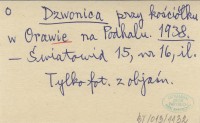 o Dzwonica przy kościółku
w Orawie na Podhalu. 1938.
— Światowid 15, nr 16, il.
Tylko fot. z objaśn.